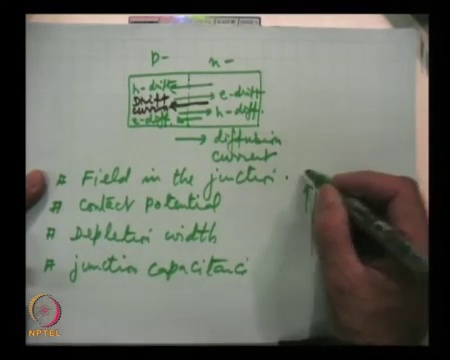 p- n-
h-drift
e-drift
Drift
current
h-diff.
e-diff.
→ diffusion
current
# Field in the junction.
# Contact potential
# Depletion width
# junction capacitanc
NPTEL